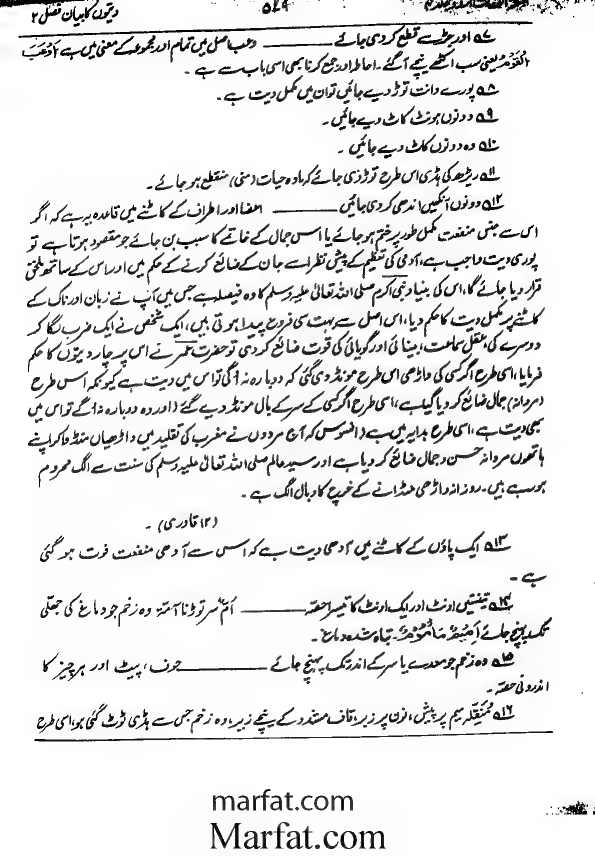 دیتوں کا بیان فصل ۲
۵۷۹
۷؎ اور جڑ سے قطع کر دی جائے ـــــــ وعب اصل میں تمام اور مجموعہ کے معنی میں ہے اَوْعَبَ
القوم یعنی سب اکٹھے نیچے آ گئے۔ احاطہ اور جمع کرنا بھی اسی باب سے ہے ۔
۸؎ پورے دانت توڑ دیے جائیں تو ان میں مکمل دیت ہے ۔
۹؎ دونوں ہونٹ کاٹ دیے جائیں ۔
۱۰؎ وہ دونوں کاٹ دیے جائیں ۔
۱۱؎ ریڑھ کی ہڈی اس طرح توڑ دی جائے کہ مادہ حیات (منی) منقطع ہو جائے۔
۱۲؎ دونوں آنکھیں اندھی کر دی جائیں ـــــــ اعضا اور اطراف کے کاٹنے میں قاعدہ یہ ہے کہ اگر
اس سے جنس منفعت مکمل طور پر ختم ہو جائے یا اس جمال کے خاتمے کا سبب بن جائے جو مقصود ہوتا ہے تو
پوری دیت واجب ہے، آدمی کی تعظیم کے پیش نظر اسے جان کے ضائع کرنے کے حکم میں اور اس کے ساتھ ملحق
قرار دیا جائے گا، اس کی بنیاد نبی اکرم صلی اللہ تعالیٰ علیہ وسلم کا وہ فیصلہ ہے جس میں آپ نے زبان اور ناک کے
کاٹنے پر مکمل دیت کا حکم دیا، اس اصل سے بہت سی فروع پیدا ہوتی ہیں، ایک شخص نے ایک ضرب لگا کر
دوسرے کی عقل سماعت، بینائی اور گویائی کی قوت ضائع کر دی تو حضرت عمر نے اس پر چار دیتوں کا حکم
فرمایا، اسی طرح اگر کسی کی داڑھی اس طرح مونڈ دی گئی کہ دوبارہ نہ اُگی تو اس میں دیت ہے کیونکہ اس طرح
(مردانہ) جمال ضائع کر دیا گیا ہے، اسی طرح اگر کسی کے سر کے بال مونڈ دیے گئے (اور وہ دوبارہ نہ اُگے تو اس میں
بھی دیت ہے، اسی طرح ہدایہ میں ہے (افسوس کہ آج مردوں نے مغرب کی تقلید میں داڑھیاں منڈوا کر اپنے
ہاتھوں مردانہ حسن و جمال ضائع کر دیا ہے اور سید عالم صلی اللہ تعالیٰ علیہ وسلم کی سنت سے الگ محروم
ہو رہے ہیں۔ روزانہ داڑھی منڈانے کے خرچ کا وبال الگ ہے ۔
(۱۲ قادری) ۔
۱۳؎ ایک پاؤں کے کاٹنے میں آدھی دیت ہے کہ اس سے آدھی منفعت فوت ہو گئی
ہے ۔
۱۴؎ تینتیس اونٹ اور ایک اونٹ کا تیسرا حصہ ـــــــ اَمّ سر توڑنا آمّۃ وہ زخم جو دماغ کی جھلی
تک پہنچ جائے مَأْمُوْمٌ۔ تباہ شدہ دماغ۔
۱۵؎ وہ زخم جو معدے یا سر کے اندر تک پہنچ جائے ـــــــ جوف، پیٹ اور ہر چیز کا
اندرونی حصہ ۔
۱۶؎ مُنَقِّلہ میم پر پیش، نون پر زبر، قاف مشدد کے نیچے زیر، وہ زخم جس سے ہڈی ٹوٹ گئی ہو، اسی طرح
marfat.com
Marfat.com